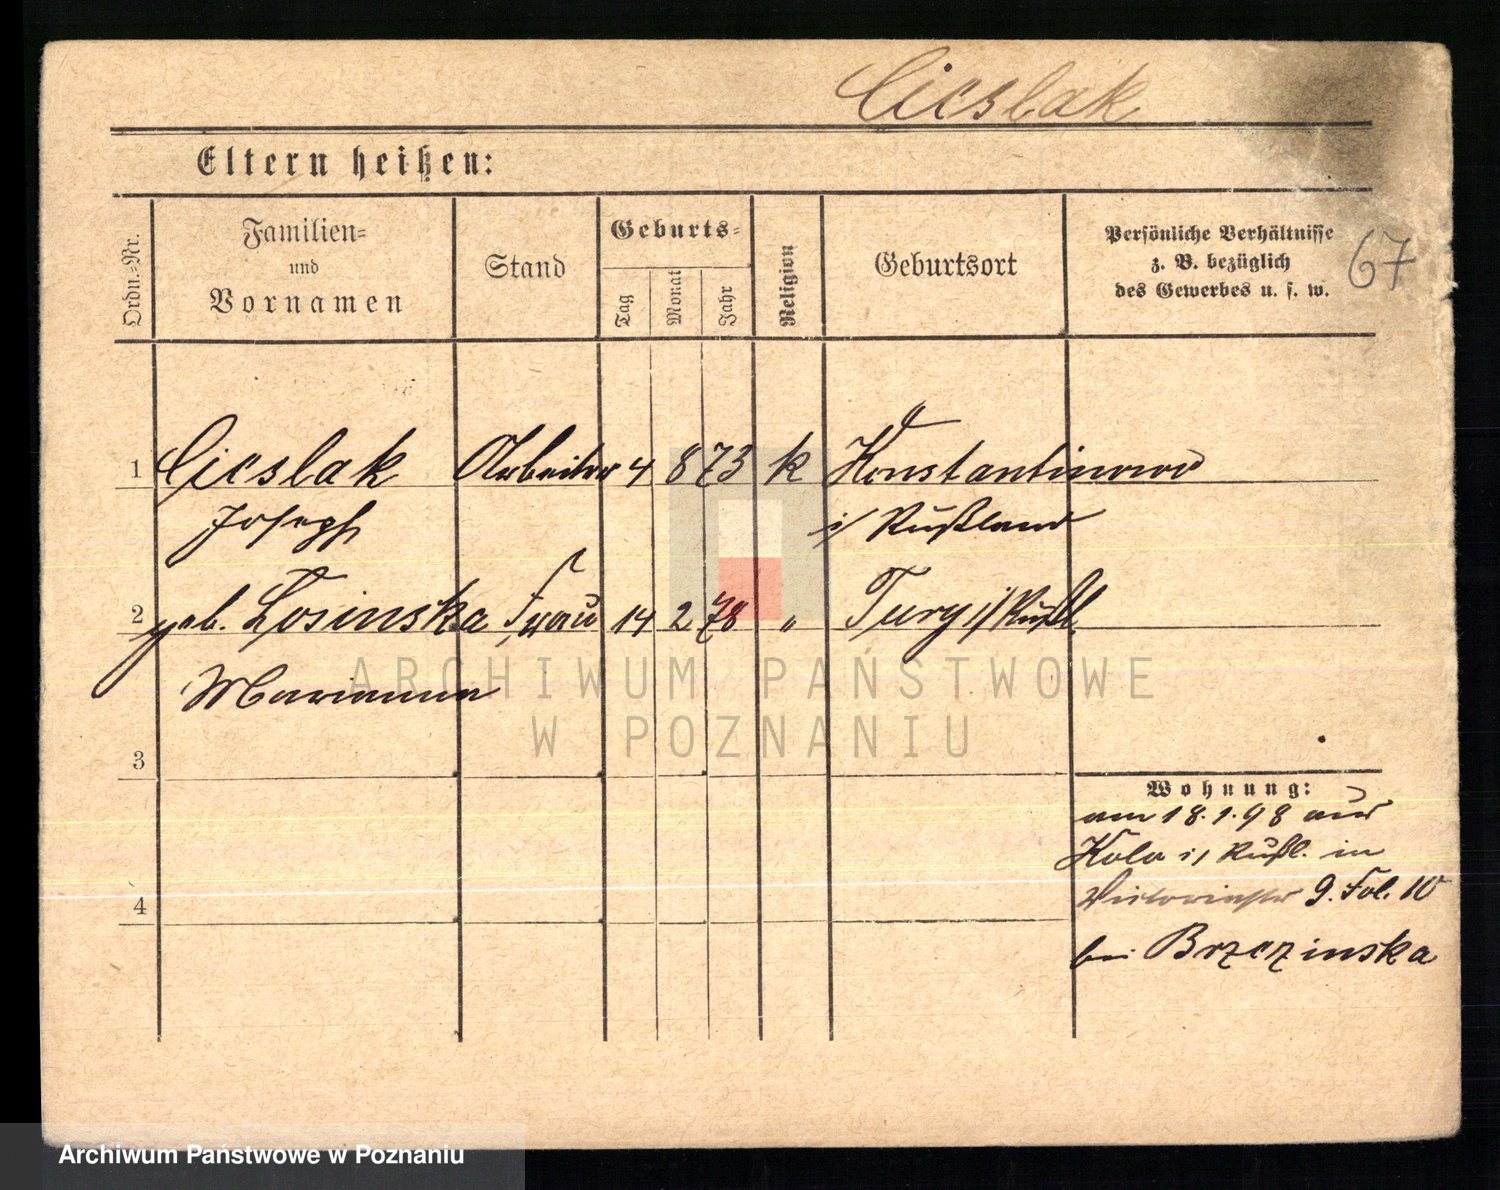 Cieslak
Eltern heißen:
Ordn.-Nr.
Familien- und Vornamen
Stand
Geburts-
Tag
Monat
Jahr
Religion
Geburtsort
Persönliche Verhältnisse
z. B. bezüglich
des Gewerbes u. s. w.
67
1 Cieslak Arbeiter 4 8 73 k Konstantinowo
Joseph i/ Rußland
2 geb. Losinska Frau 14 2 78 " Tury i/ Rußl.
Marianna
ARCHIWUM PAŃSTWOWE
W POZNANIU
3
Wohnung:
am 18.1.98 aus
Kolo i/ Rußl. in
Victoriastr 9. Fol. 10
4
bei Brzezinska
Archiwum Państwowe w Poznaniu